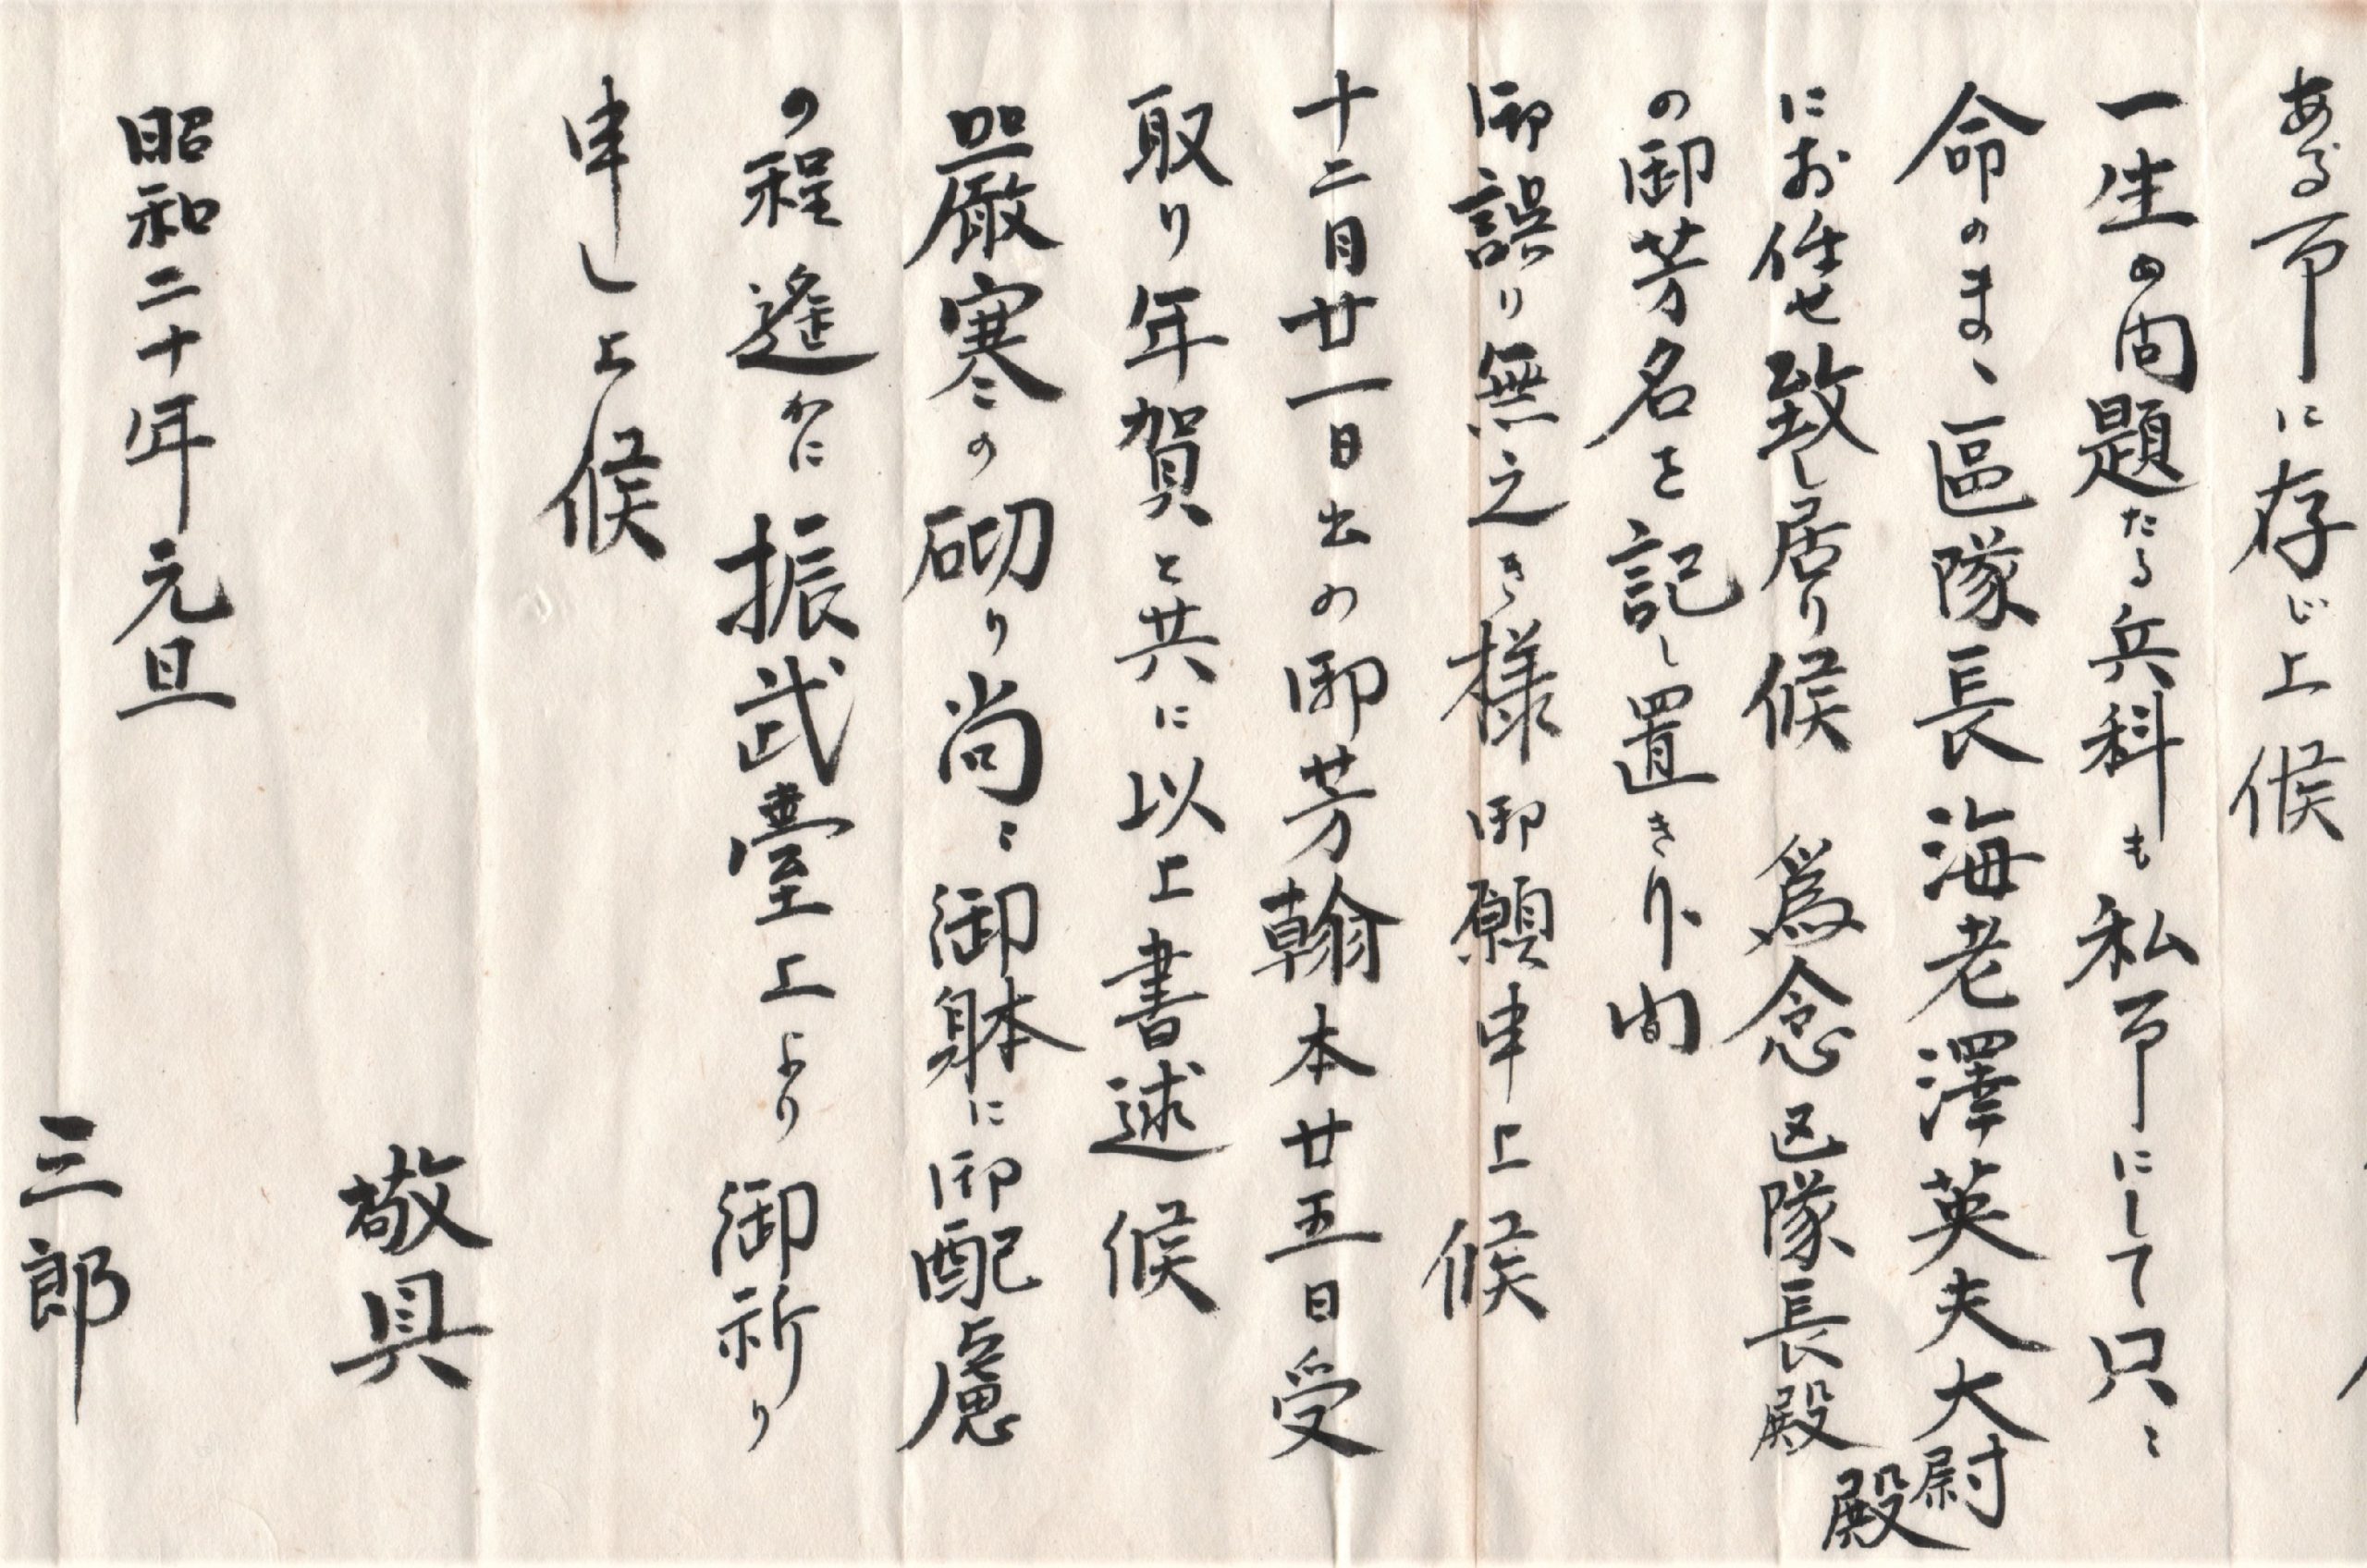 ある可に存じ上候
一生の問題たる兵科も私可にして只〻
命のまゝ區隊長海老澤英夫大尉殿
にお任せ致し居り候　爲念区隊長殿
の御芳名を記し置きり下間
御誤り無之き様御願申上候
十二月廿一日出の御芳翰本廿五日受
取り年賀と共に以上書述候
嚴寒の砌り尚〻御躰に御配慮
の程遙かに振武臺上より御祈り
申し上候
敬具
昭和二十年元旦
三郎